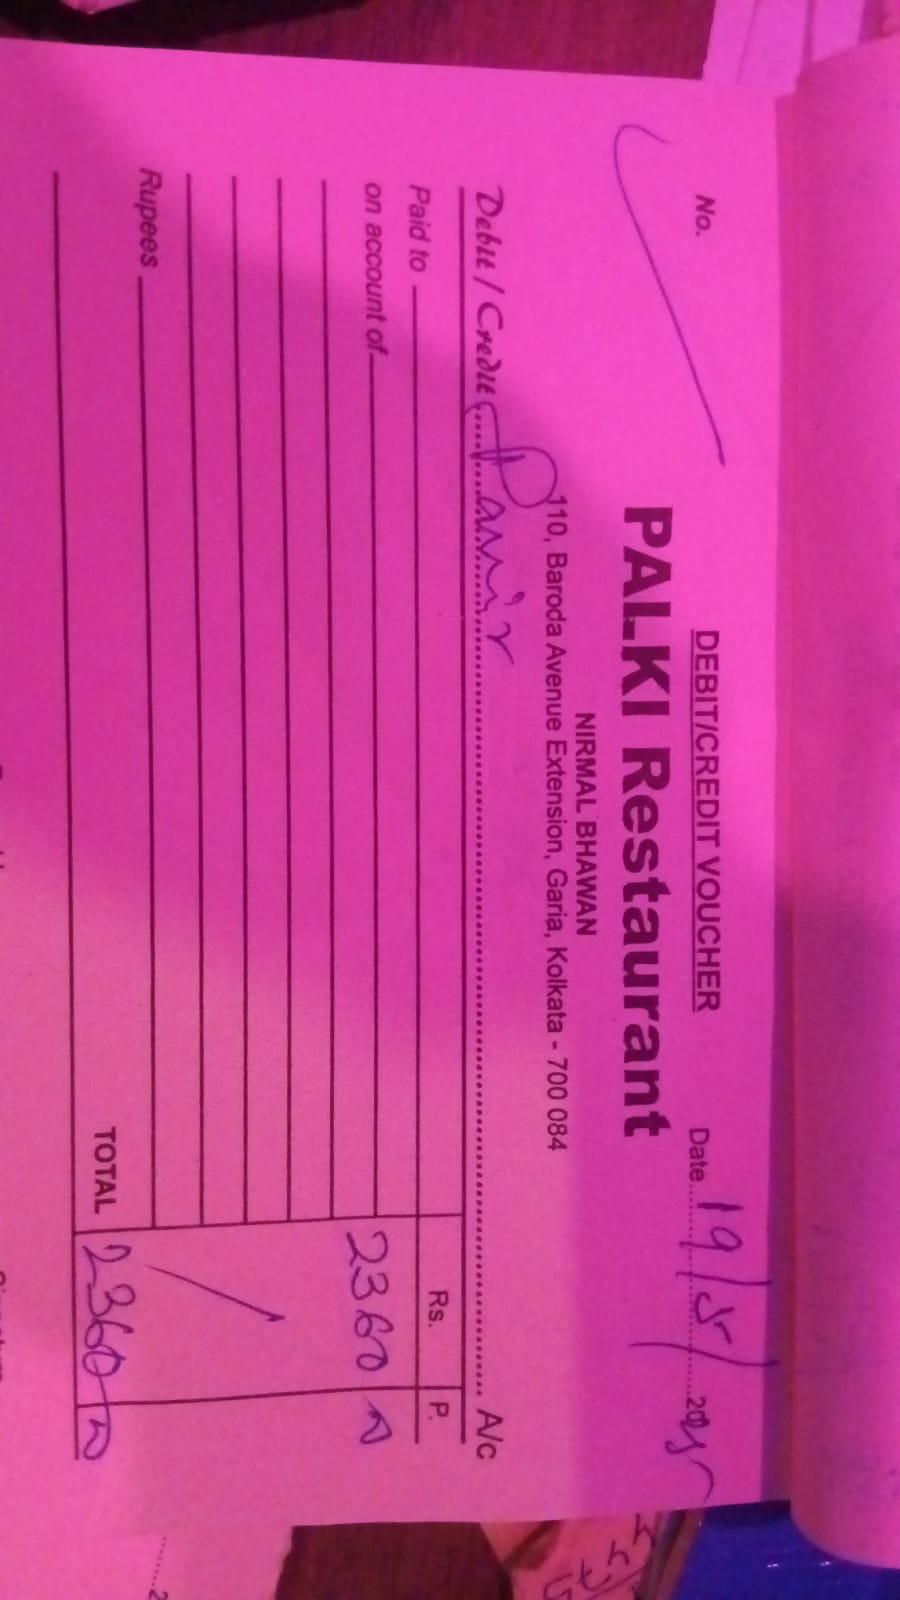 DEBIT/CREDIT VOUCHER
No. Date 19/5/2025
PALKI Restaurant
NIRMAL BHAWAN
110, Baroda Avenue Extension, Garia, Kolkata - 700 084
Debit / Credit Panir A/c
Paid to Rs. P.
on account of 2360 00
Rupees
TOTAL 2360 00